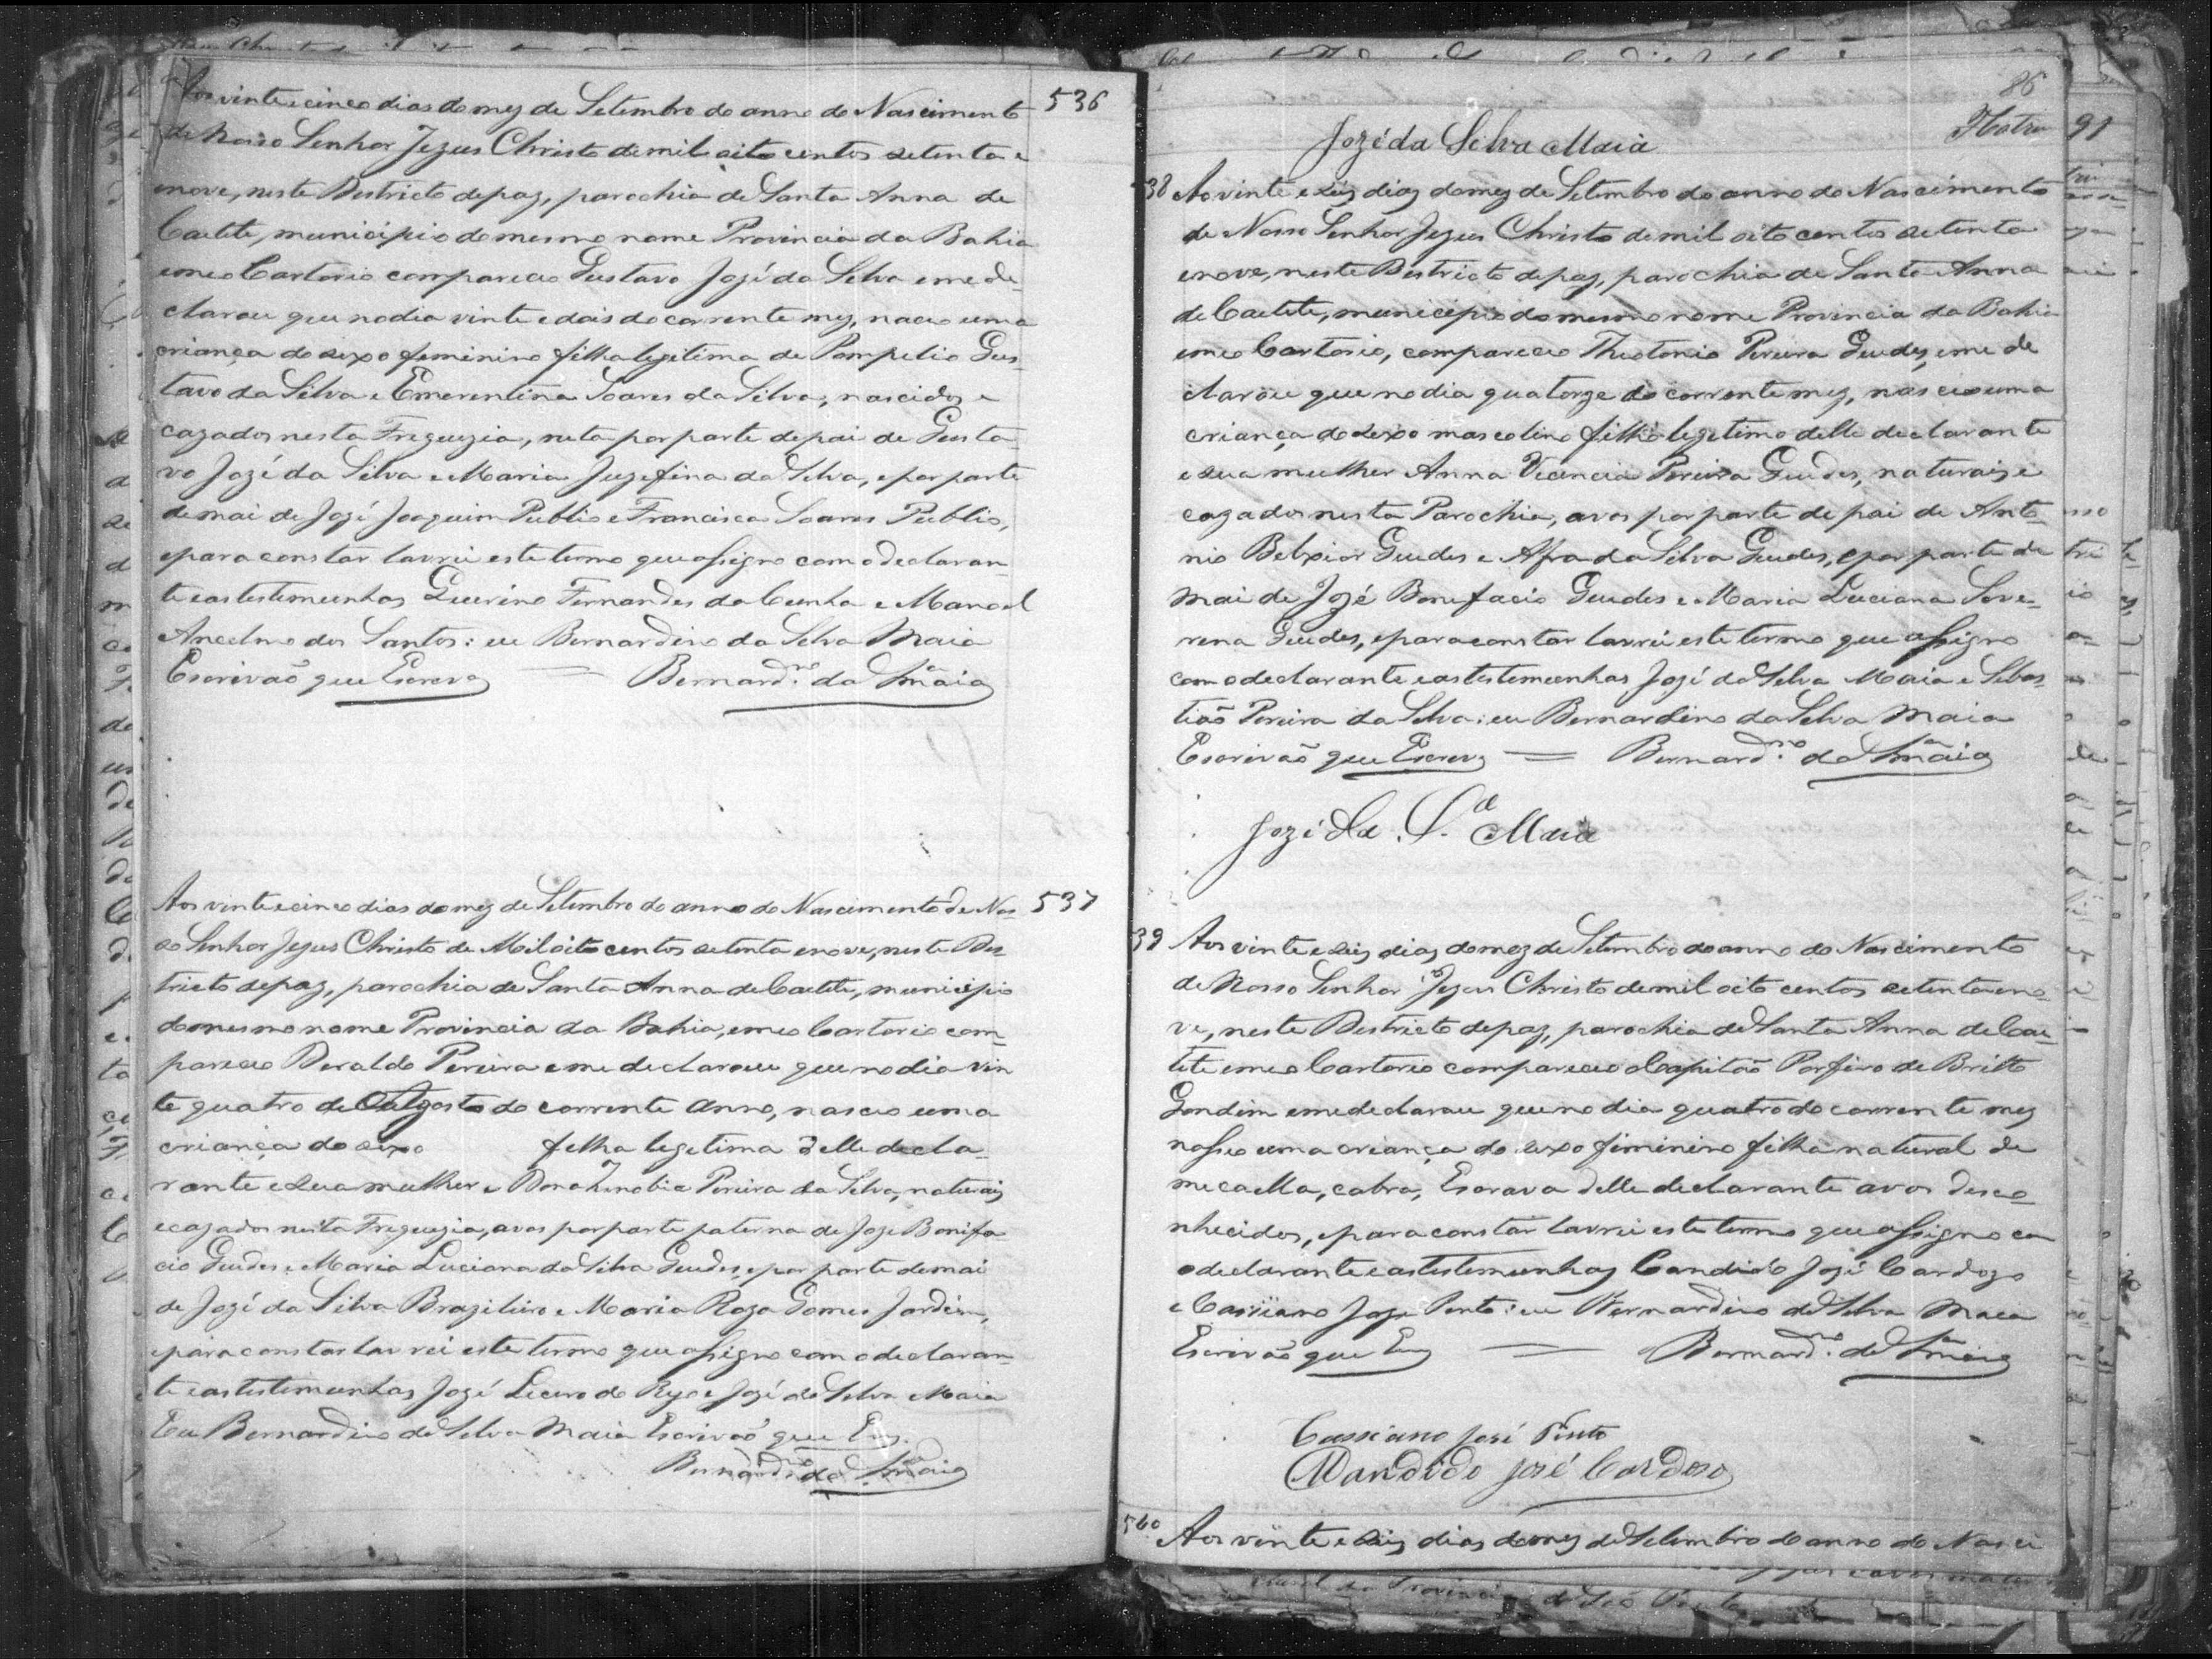 536
Aos vinte e cinco dias do mez de Setembro do anno do Nascimento
de Nosso Senhor Jezus Christo de mil oito centos setenta e
nove, neste Destricto de paz, parochia de Santa Anna de
Caetite, municipio do mesmo nome Provincia da Bahia
em eo Cartorio compareceo Gustavo Jozé da Silva e me de-
clarou que no dia vinte e dois do corrente mez, naceo uma
criança do sexo feminino filha legitima de Pompilio Gus-
tavo da Silva e Emerentina Soares da Silva, nascidos e
cazados nesta Freguezia, neta por parte de pai de Gusta
vo Jozé da Silva e Maria Juzefina da Silva, e por parte
de mai de Jozé Joaquim Publio e Francisca Soares Publio,
e para constar lavrei este termo que assigno com o declaran-
te e as testemunhas Guerino Fernandes da Cunha e Manoel
Ancelmo dos Santos: eu Bernardino da Silva Maia
Escrivaõ que Escrevy = Bernard.no da S.a Maia
537
Aos vinte e cinco dias do mez de Setembro do anno do Nascimento de Nos
so Senhor Jezus Christo de Mil oito centos setenta e nove, neste Des
tricto de paz, parochia de Santa Anna de Caetite, municipio
do mesmo nome Provincia da Bahia, em eo Cartorio com-
pareceo Deraldo Pereira e me declarou que no dia vin
te quatro de Agosto do corrente anno, nasceo uma
criança do sexo filha legitima delle decla-
rante e sua mulher e Dona Zenobia Pereira da Silva, naturais
e cazados nesta Freguezia, avos por parte paterna de Joze Bonifa-
cio Guedes e Maria Luciana da Silva Guedes, e por parte de mai
de Jozé da Silva Brazileiro e Maria Roza Gomes Jardim,
e para constar lavrei este termo que assigno com o declaran-
te e as testemunhas Jozé Lecero do Rego e Jozé da Silva Maia
Eu Bernardino da Silva Maia Escrivaõ que Esy.
Bernard.no da S.a Maia
86
91
Jozé da Silva Maia
38 Aos vinte e seis dias do mez de Setembro do anno do Nascimento
de Nosso Senhor Jezus Christo de mil oito centos setenta
e nove, neste Destricto de paz, parochia de Santa Anna
de Caetite, municipio do mesmo nome Provincia da Bahia
em eo Cartorio, compareceo Theotonio Pereira Guedes, e me de
clarou que no dia quatorze do corrente mez, nasceo uma
criança do sexo mascolino filho legetimo delle declarante
e sua mulher Anna Vicencia Pereira Guedes, naturais e
cazados nesta Parochia, avos por parte de pai de Anto-
nio Belxior Guedes e Afra da Silva Guedes, e por parte de
mai de Jozé Bonefacio Guedes e Maria Luciana Seve-
rena Guedes, e para constar lavrei este termo que assigno
com o declarante e as testemunhas Jozé da Silva Maia e Sebas-
tiaõ Pereira da Silva: eu Bernardino da Silva Maia
Escrivaõ que Escrevy = Bernard.no da S.a Maia
Jozé da S.a Maia
39 Aos vinte e seis dias do mez de Setembro do anno do Nascimento
de Nosso Senhor Jezus Christo de mil oito centos setenta e no-
ve, neste Destricto de paz, parochia de Santa Anna de Cae-
tite em eo Cartorio compareceo o Capitaõ Porfiro de Britto
Gondim e me declarou que no dia quatro do corrente mez
nasseo uma criança do sexo feminino filha natural de
Mecaella, cabra, Escrava delle declarante avos desco-
nhecidos, e para constar lavrei este termo que assigno co
o declarante e as testemunhas Candido Jozé Cardozo
e Cassiano Joze Pinto: eu Bernardino da Silva Maia
Escrivaõ que Esy = Bernard.no da S.a Maia
Cassiano José Pinto
Candido José Cardoso
540 Aos vinte e seis dias do mez de Setembro do anno do Nasci